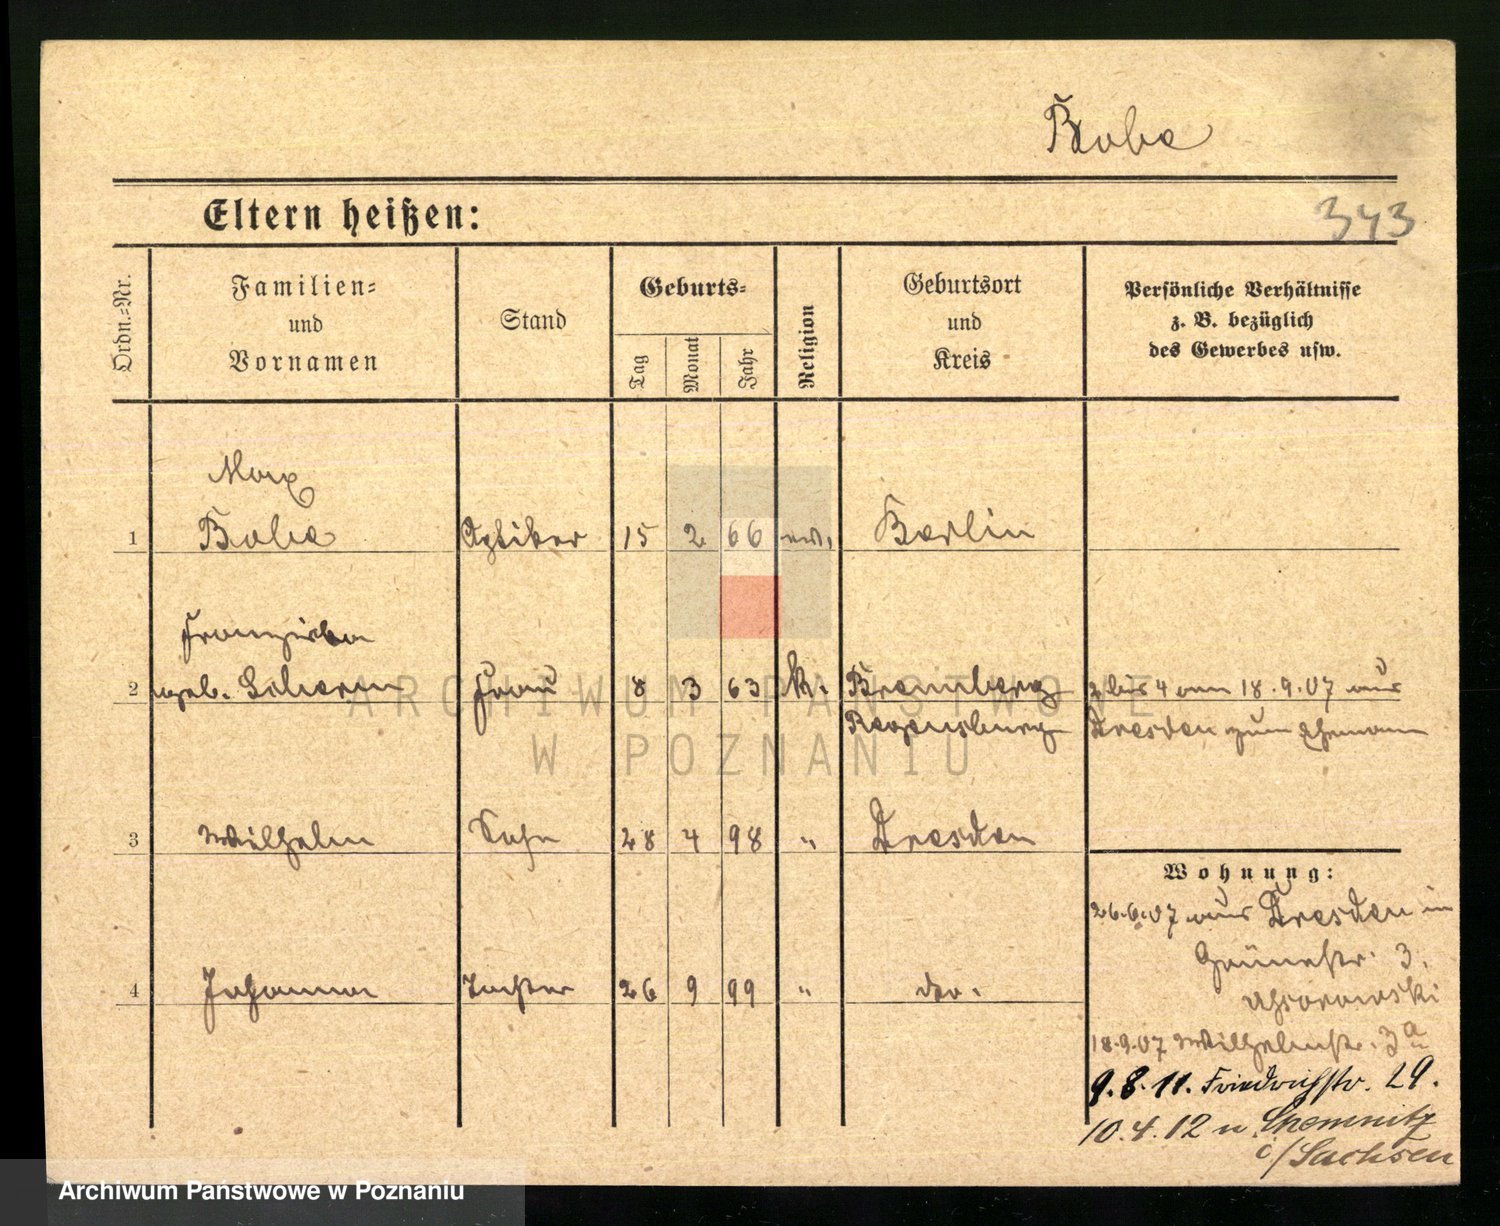 Boba
Eltern heißen:
343
Ordn.-Nr.
Familien-
und
Vornamen
Stand
Geburts-
Tag
Monat
Jahr
Religion
Geburtsort
und
Kreis
Persönliche Verhältnisse
z. B. bezüglich
des Gewerbes usw.
Max
1 Boba Optiker 15 2 66 ev. Berlin
Franziska
2 geb. Frau 8 3 63 k. Bromberg 2 bis 4 am 18.9.07 aus
Regensburg Dresden zum Ehemann
3 Wilhelm Sohn 28 4 98 " Dresden
Wohnung:
26.6.07 aus Dresden in
Grünestr. 3.
4 Johanna Tochter 26 9 99 " do.
18.9.07 Wilhelmstr. 3a
9.8.11. Friedrichstr. 29.
10.4.12 n. Chemnitz
i/Sachsen
ARCHIWUM PAŃSTWOWE
W POZNANIU
Archiwum Państwowe w Poznaniu